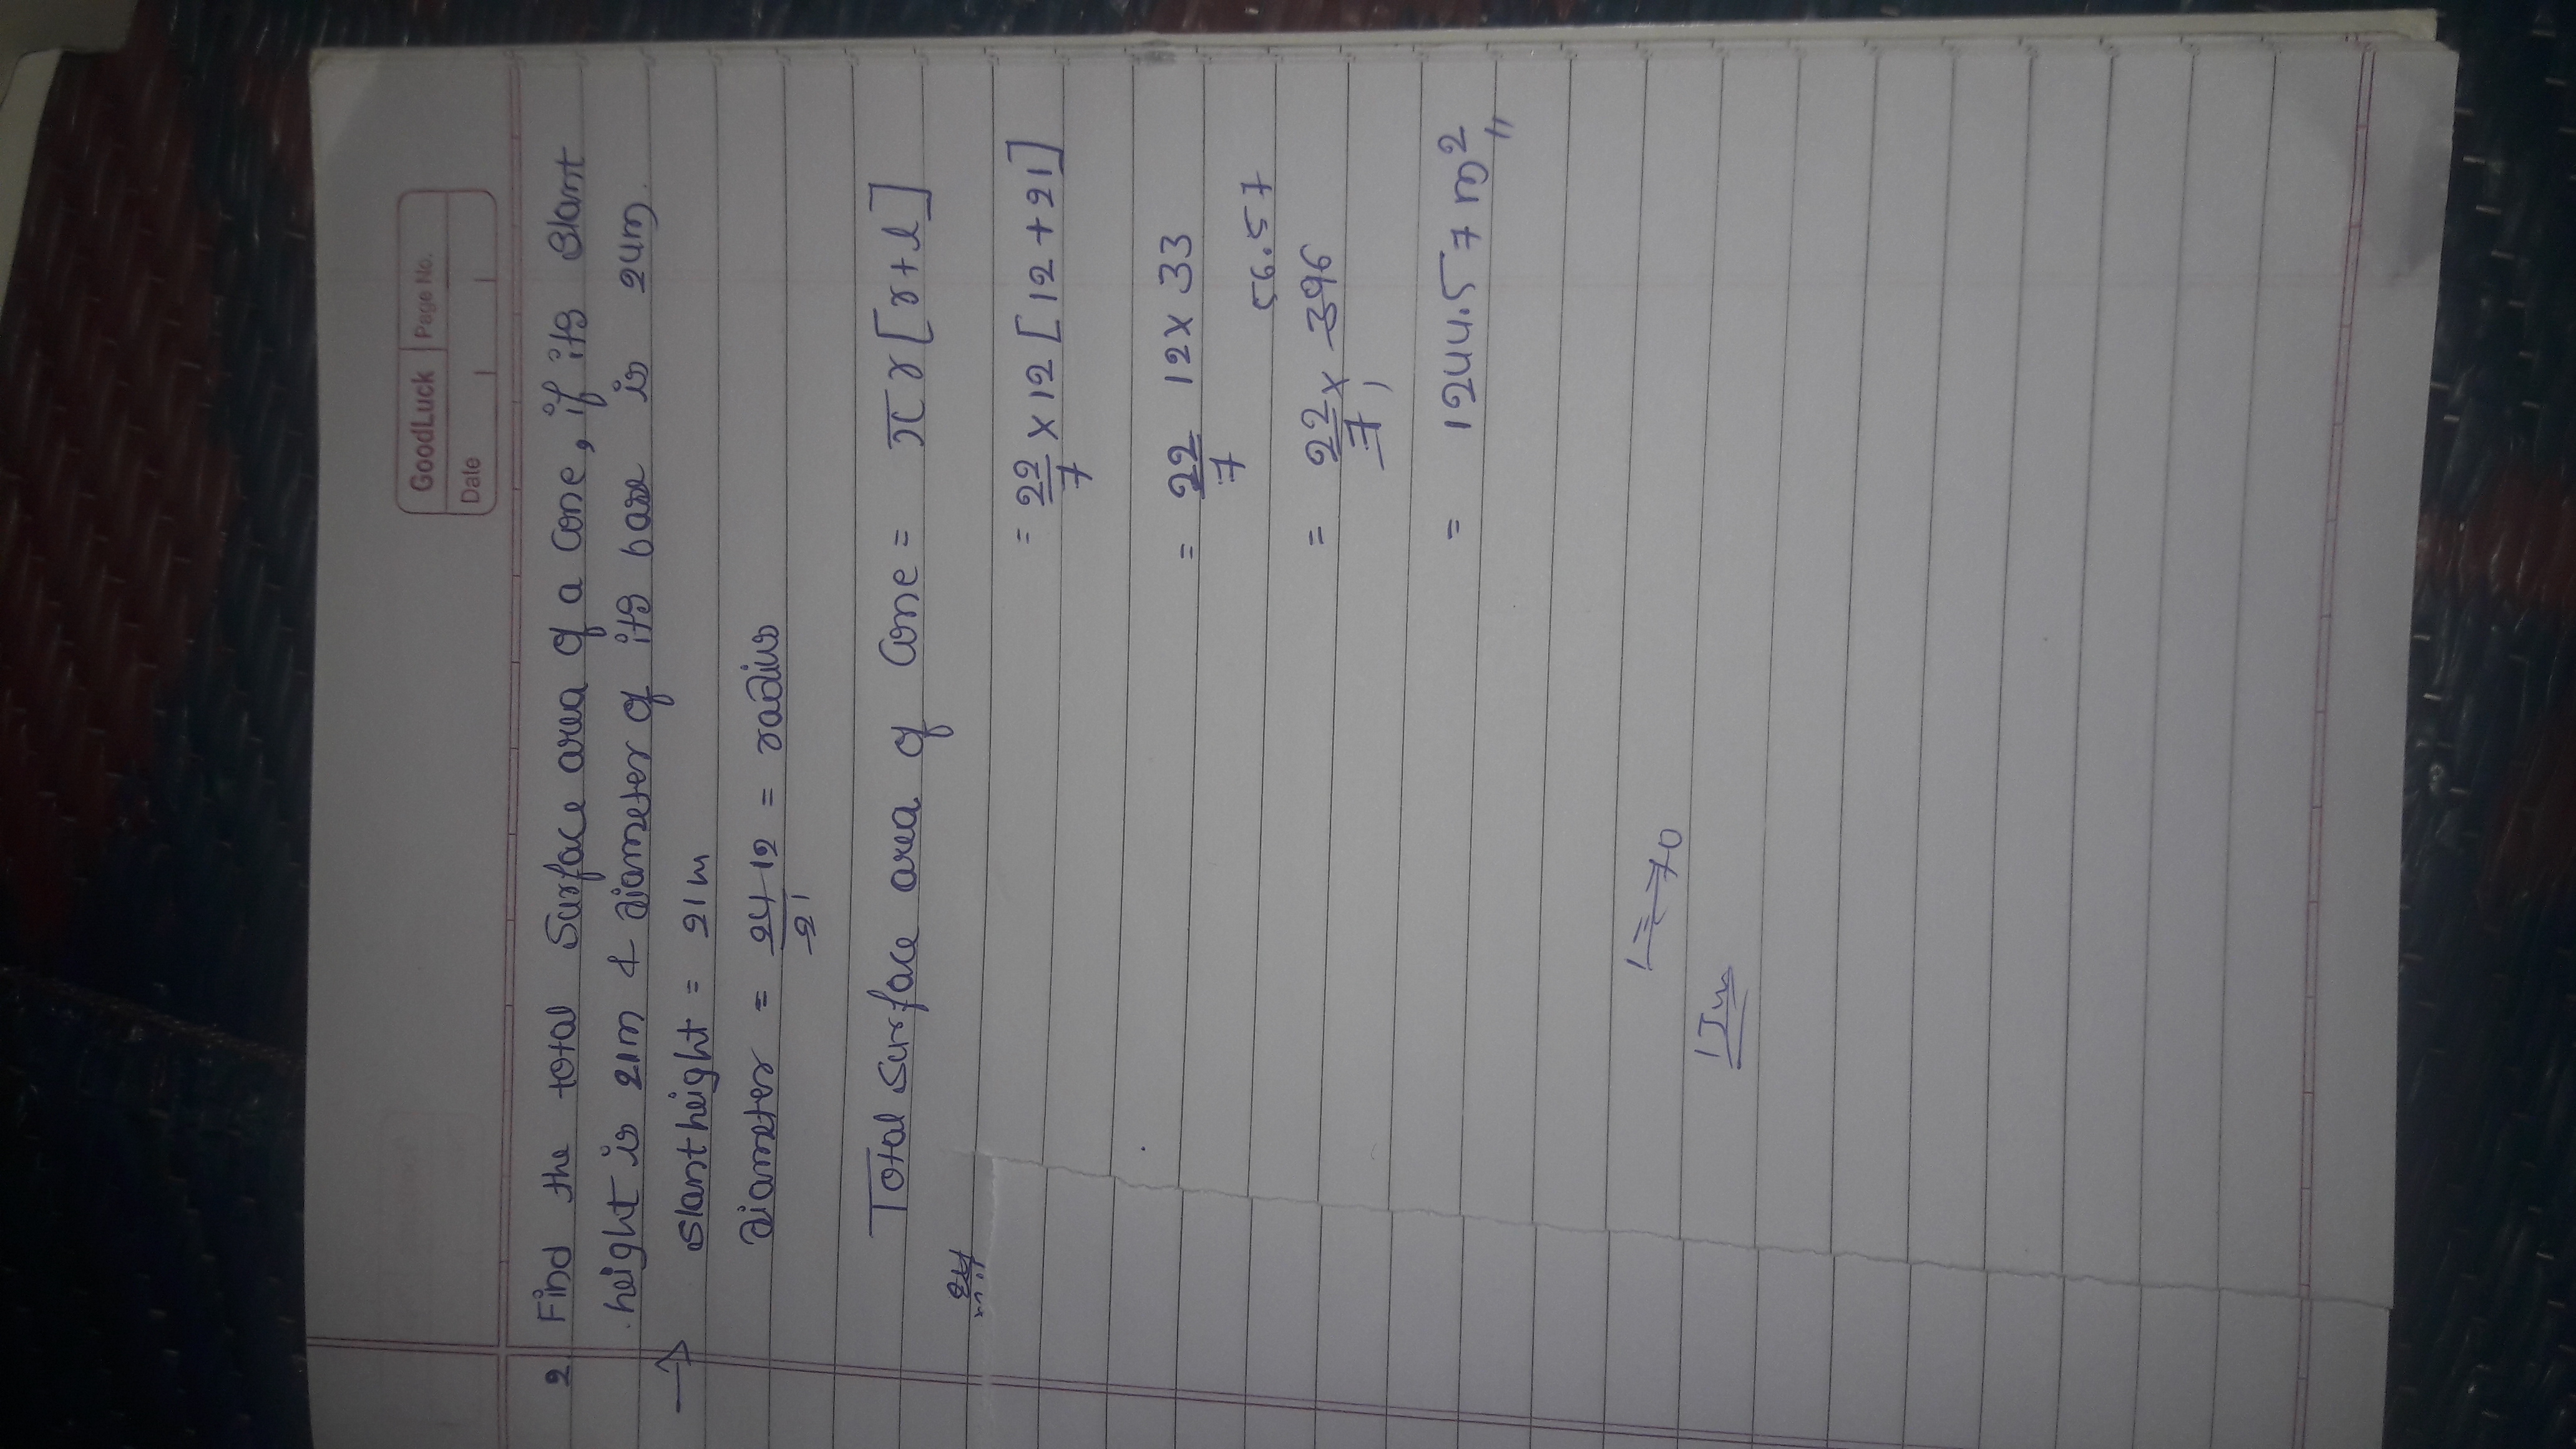 GoodLuck Page No.
Date
2. Find the total Surface area of a Cone, if its slant
height is 21m & diameter of its base is 24m.
→ slant height = 21m
diameter = 24/2 12 = radius
1
Total surface area of Cone = πr[r+l]
= 22/7 × 12 [12+21]
= 22/7 12 × 33
56.57
= 22/7 × 396
1
= 1244.57 m²